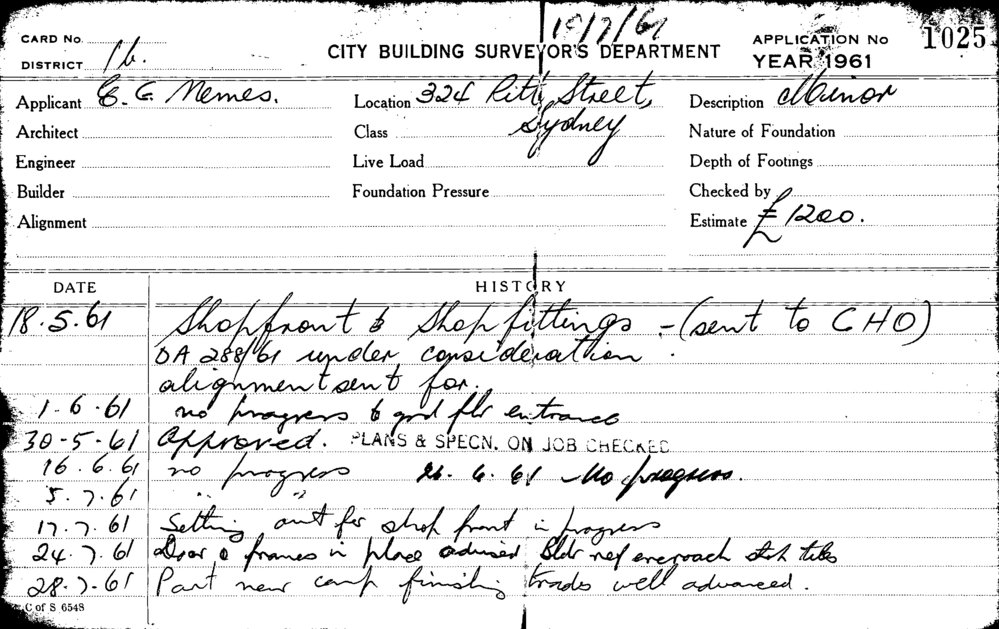 CARD No.
DISTRICT 16.
15/7/61
CITY BUILDING SURVEYOR'S DEPARTMENT
APPLICATION No 1025
YEAR 1961
Applicant E. G. Nemes.
Location 324 Pitt Street, Sydney
Description Minor
Architect
Class
Nature of Foundation
Engineer
Live Load
Depth of Footings
Builder
Foundation Pressure
Checked by
Alignment
Estimate £1200.
DATE HISTORY
18.5.61 Shopfront & Shopfittings - (sent to CHO)
DA 288/61 under consideration.
alignment sent for.
1.6.61 no progress to grd flr entrance
30-5-61 Approved. PLANS & SPECN. ON JOB CHECKED
16.6.61 no progress 21.6.61 No progress.
5.7.61 " "
17.7.61 Setting out for shop front in progress
24.7.61 Door & frames in place advised Bldr ref encroach tiles
28.7.61 Part new comp finishing trades well advanced.
C of S 6548